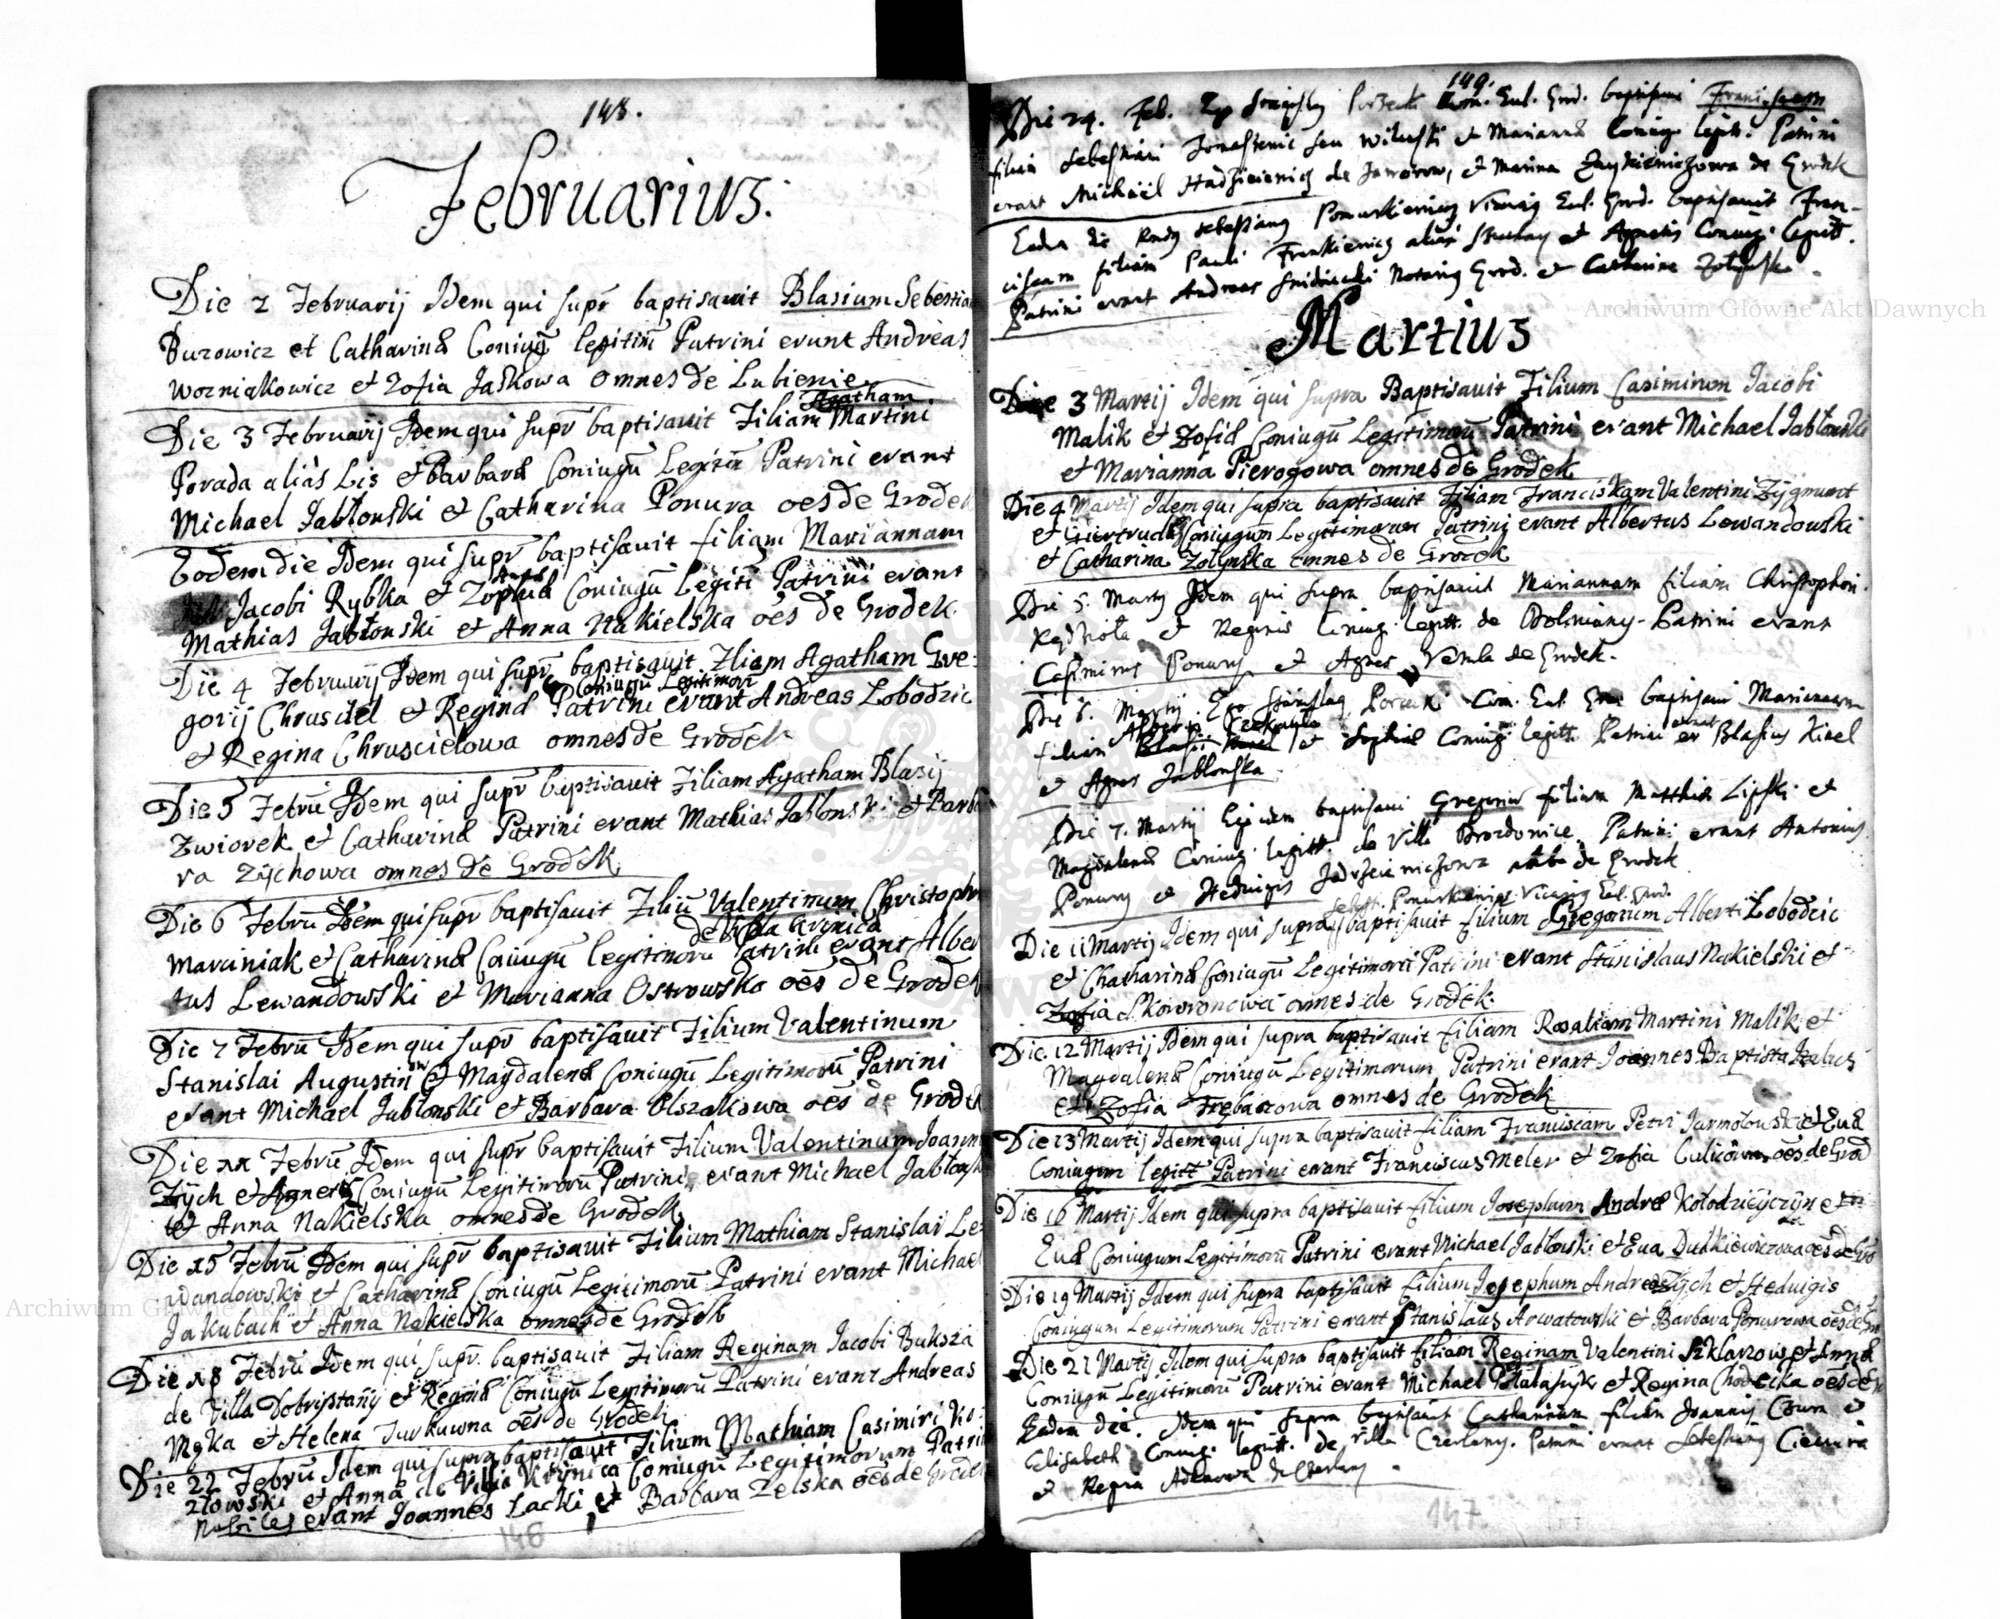 148.
Februarius.
Die 2 Februarij Idem qui supr baptisavit Blasium Sebestia
Burowicz et Catharinæ Coniugū legitim Patrini erant Andreas
Wozniakowicz et Zofia Jaskowa omnes de Lubienie
Agatham
Die 3 Februarij Idem qui supr baptisavit Filiam Martini
Porada aliàs Lis et Barbaræ Coniugū Legitim Patrini erant
Michael Jabłonski et Catharina Ponura oēs de Grodek
Eodem die Idem qui supr baptisavit filiam Mariannam
Jacobi Rybka et Coniugū Legiti Patrini erant
Mathias Jabłonski et Anna Nakielska oēs de Grodek
Die 4 Februarij Idem qui supr baptisavit Fliam Agatham Gre-
Coniugū Legitimorū
gorij Chrusciel et Reginæ Patrini erant Andreas Łobodzic
et Regina Chruscielowa omnes de Grodek
Die 5 Febrū Idem qui supr baptisavit Filiam Agatham Blasij
Zwiorek et Catharinæ Patrini erant Mathias Jabłonski et Barba
ra Zÿchowa omnes de Grodek
Die 6 Febrū Idem qui supr baptisavit Filiū Valentinum Christophr
de Villa
Marciniak et Catharinæ Coniugū legitimorū Patrini erant Alber
tus Lewandowski et Marianna Ostrowska oēs de Grodek
Die 7 Febrū Idem qui supr baptisavit Filium Valentinum
Stanislai Augustin et Magdalenæ Coniugū Legitimorū Patrini
erant Michael Jabłonski et Barbara Olszakowa oēs de Grodek
Die 11 Febrū Idem qui supr baptisavit Filium Valentinum Joann
Zÿch et Agnetis Coniugū Legitimorū Patrini erant Michael Jabłonsk
et Anna Nakielska omnes de Grodek
Die 15 Febrū Idem qui supr baptisavit Filium Mathiam Stanislai Le-
wandowski et Catharinæ Coniugū Legitimorū Patrini erant Michael
Jakubach et Anna Nakielska omnes de Grodek
Die 18 Febrū Idem qui supr baptisavit Filiam Reginam Jacobi Buksza
de Villa Dobrzstanÿ et Reginæ Coniugū Legitimorū Patrini erant Andreas
Mąka et Helena Turkuwna oēs de Grodek
Die 22 Febrū Idem qui supra baptisavit Filium Mathiam Casimiri Ko-
złowski et Annæ de Villa Coniugū Legitimorum Patrin
Nobiles erant Joannes Łacki et Barbara Zelska oēs de Grodek
146
149.
Die 24. Feb. Eccl. Grod. baptisavi Franciscam
filiam Sebastiani seu Wiluski et Mariannæ Coniug. legitt. Patrini
erant Michaël de Jaworow, et Marina de Grodek
Eadem die Sebastianus Ponurkiewicz Vicarius Eccl. Grod. baptisavit Fran-
ciscam filiam Pauli Frankiewicz alias et Agnetis Coniug. legitt.
Patrini erant Andreas Notarius Grod. et Catharina Zołynska
Martius
Die 3 Martij Idem qui supra Baptisavit Filium Casimirum Jacobi
Malik et Zofiæ Coniugū Legitimorū Patrini erant Michael Jabłonski
et Marianna Pierogowa omnes de Grodek
Die 4 Martij Idem qui supra baptisavit Filiam Franciskam Valentini Zÿgmunt
et Giertrudæ Coniugūm Legitimorum Patrini erant Albertus Lewandowski
et Catharina Zołynska omnes de Grodek
Die 5. Martij Idem qui supra baptisavit Mariannam filiam Christophori
et Reginæ Coniug. legitt. de Doliniany. Patrini erant
Casimirus Ponury et Agnes de Grodek.
Die 6. Martij Ego Stanislaus Porzecki Com. Eccl. Grod baptisavi Mariannam
filiam Alberti et Sophiæ Coniug. legitt. Patrini erant Blasius Kisel
et Agnes Jabłonska
Die 7. Martij Egidem baptisavi Gregoriū filium Matthiæ Lipski et
Magdalenæ Coniug. legitt. de Villa Patrini erant Antonius
Ponury et Hedwigis de Grodek
Sebast. Ponurkiewicz Vicarius Eccl. Grod.
Die 11 Martij Idem qui supra baptisavit filium Gregorium Alberti Łobodzic
et Chatharinæ Coniugū Legitimorū Patrini erant Stanislaus Nakielski et
Zofia Skowroncowa omnes de Grodek.
Die 12 Martij Idem qui supra baptisavit filiam Rosaliam Martini Malik et
Magdalenæ Coniugū Legitimorum Patrini erant Joannes Baptista
et Zofia Trębaczowa omnes de Grodek
Die 13 Martij Idem qui supra baptisavit filiam Franciscam Petri Jarmołowski et Euæ
Coniugum legitt Patrini erant Franciscus Meler et Zofia oēs de Grod
Die 16 Martij Idem qui supra baptisavit filium Josephum Andreæ Kołodzieÿczÿn et
Euæ Coniugum Legitimorū Patrini erant Michael Jabłonski et Eua Dudkiewiczowa oēs de Gro
Die 19 Martij Idem qui supra baptisavit filium Josephum Andreæ Zÿch et Heduigis
Coniugum Legitimorum Patrini erant Stanislaus Arwatowski et Barbara Ponurowa oēs de Gro
Die 21 Martij Idem qui supra baptisavit filiam Reginam Valentini Szklarzow et Annæ
Coniugū Legitimorū Patrini erant Michael et Regina oēs de
Eadem die. Idem qui supra baptisavit Catharinam filiam Joannis et
Elisabeth Coniug. legitt. de Villa Czerlany. Patrini erant Sebestianus
et Regina
147
Archiwum Główne Akt Dawnych
Archiwum Główne Akt Dawnych